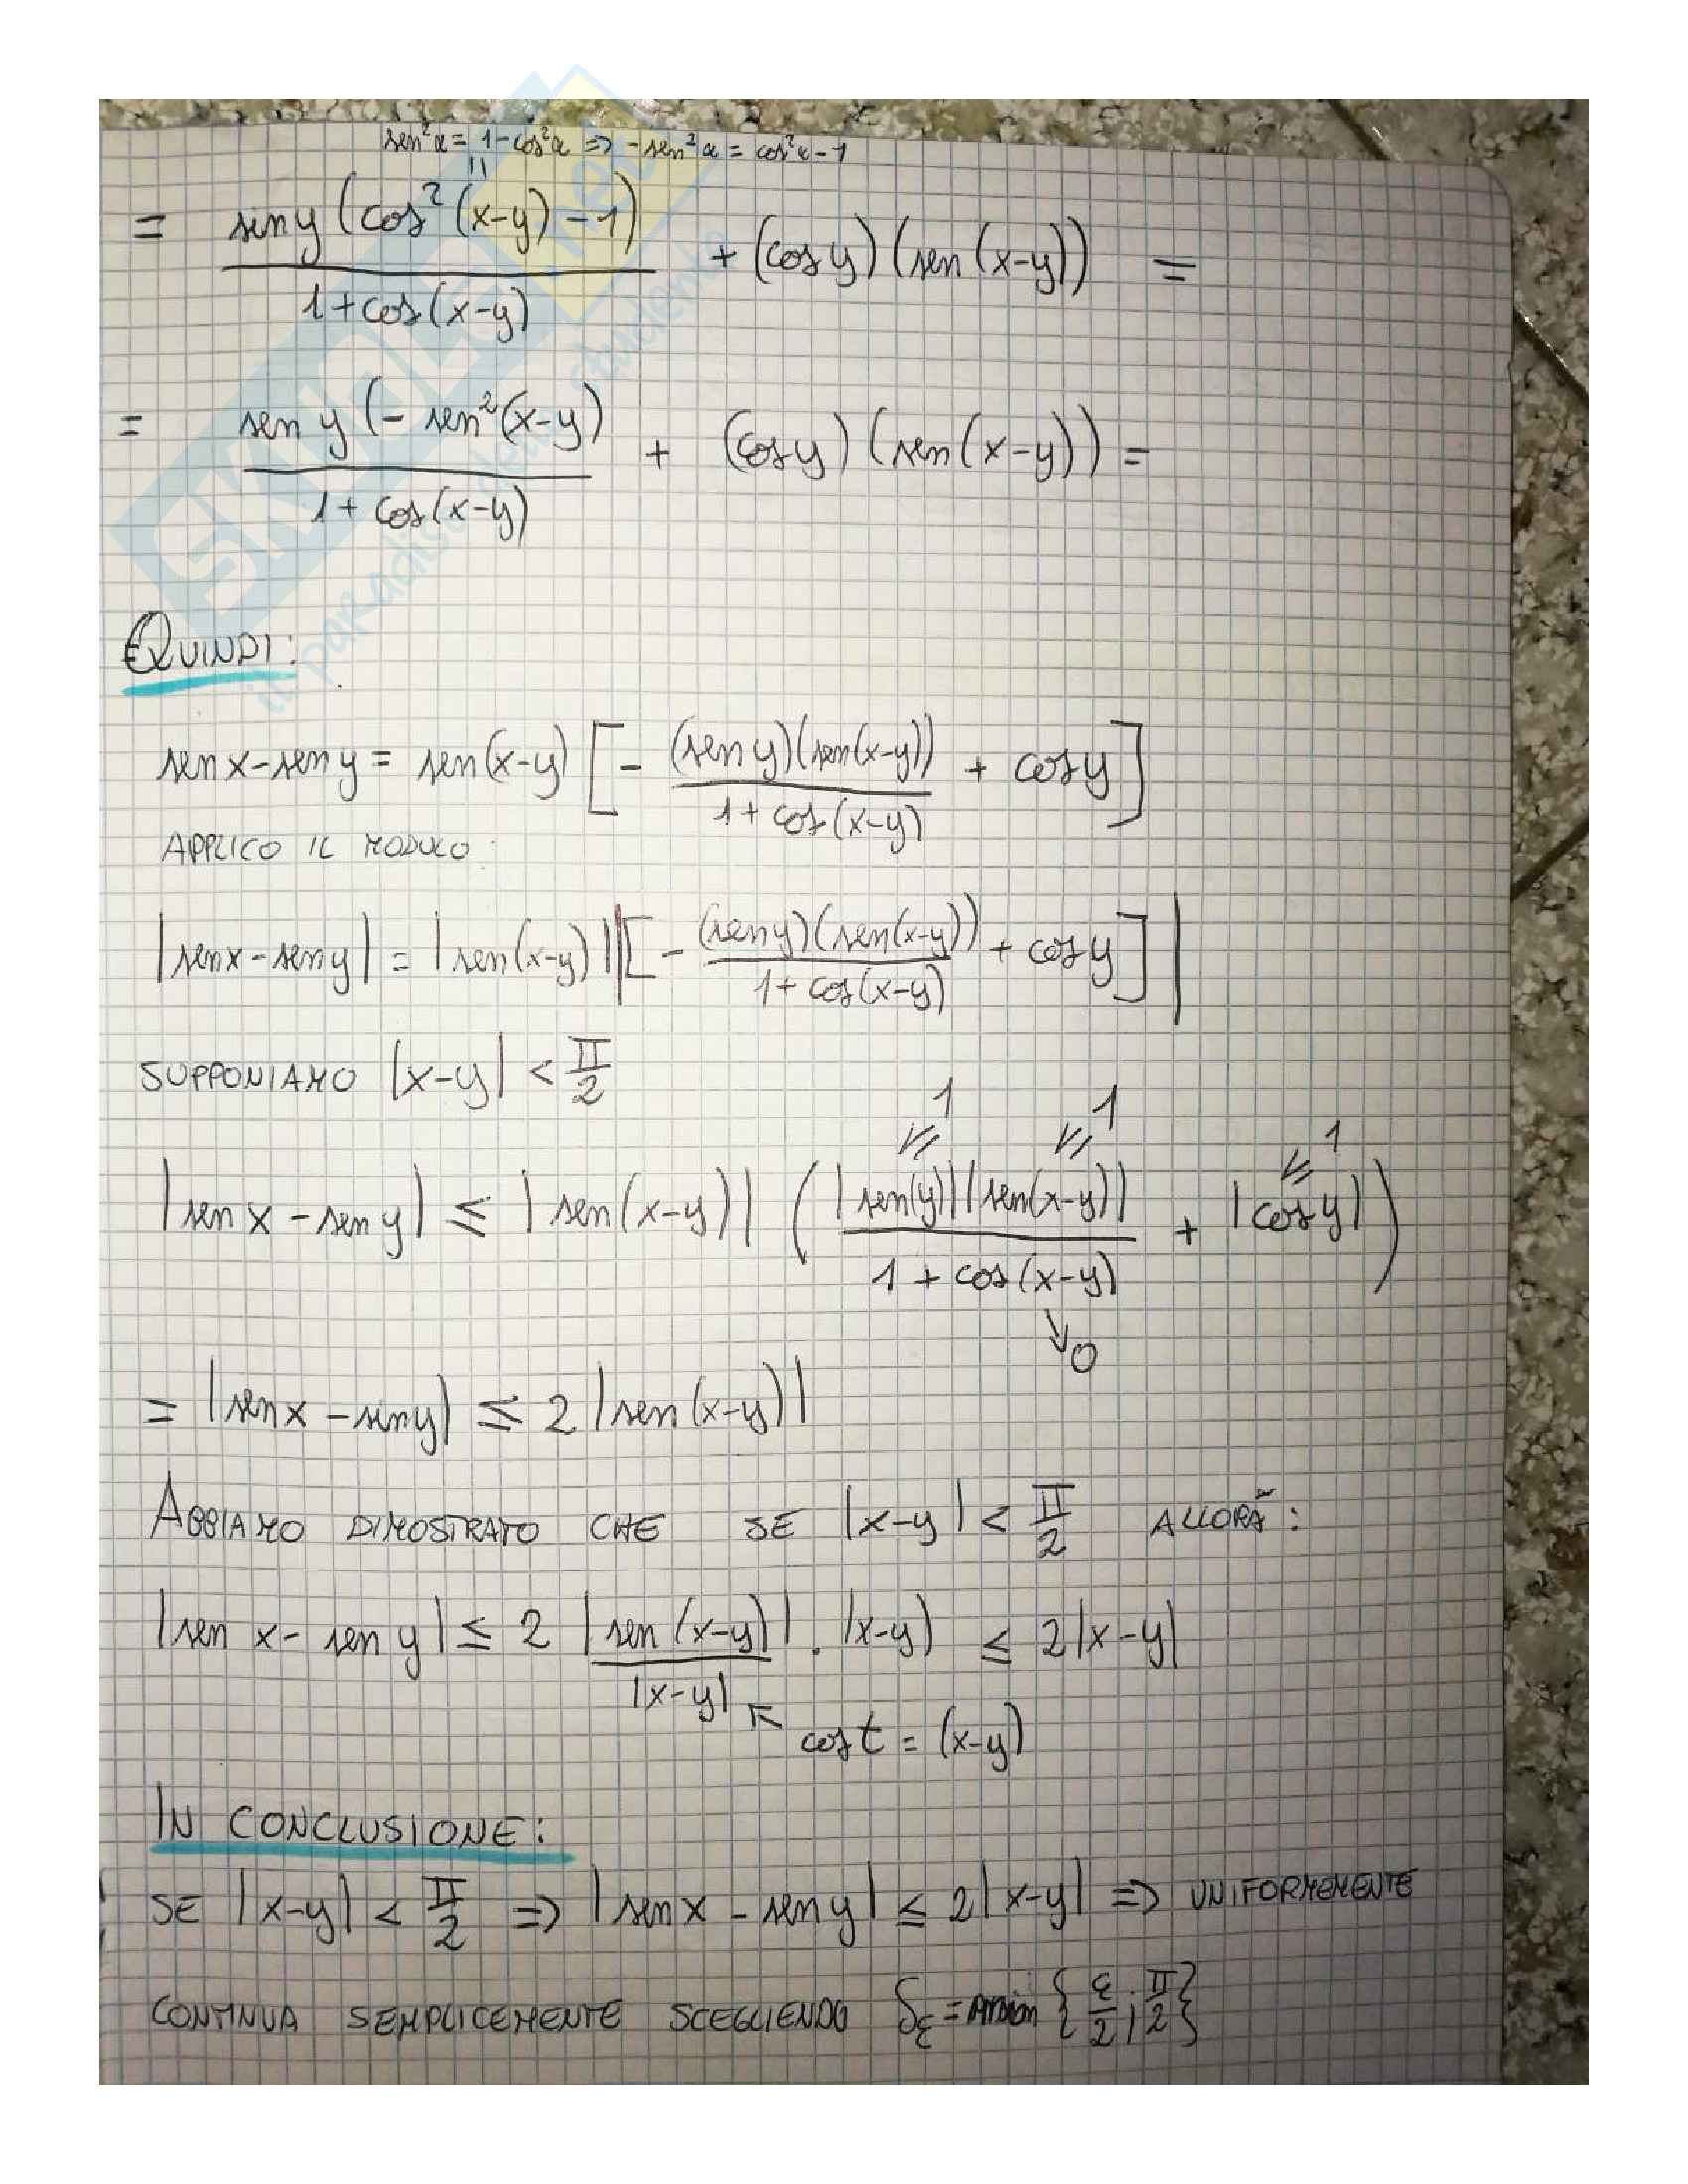 sen²α = 1 - cos²α => -sen²α = cos²α - 1
= siny (cos²(x-y) - 1) / 1 + cos(x-y) + (cos y)(sen(x-y)) =
= sen y (- sen²(x-y) / 1 + cos(x-y) + (cos y)(sen(x-y)) =
QUINDI:
sen x - sen y = sen(x-y) [ - (sen y)(sen(x-y)) / 1 + cos(x-y) + cos y ]
APPLICO IL MODULO:
|sen x - sen y| = |sen(x-y)| |[ - (sen y)(sen(x-y)) / 1 + cos(x-y) + cos y ]|
SUPPONIAMO |x-y| < π/2
1 1 1
|sen x - sen y| ≤ |sen(x-y)| ( |sen(y)| |sen(x-y)| / 1 + cos(x-y) + |cos y| )
↘ 0
= |sen x - sin y| ≤ 2 |sen(x-y)|
ABBIAMO DIMOSTRATO CHE SE |x-y| < π/2 ALLORA:
|sen x - sen y| ≤ 2 |sen(x-y)| / |x-y| · |x-y| ≤ 2|x-y|
cos t = (x-y)
IN CONCLUSIONE:
SE |x-y| < π/2 => |sen x - sen y| ≤ 2|x-y| => UNIFORMEMENTE
CONTINUA SEMPLICEMENTE SCEGLIENDO δε = min { ε/2 ; π/2 }
SKUOLA.net
il paradiso dello studente